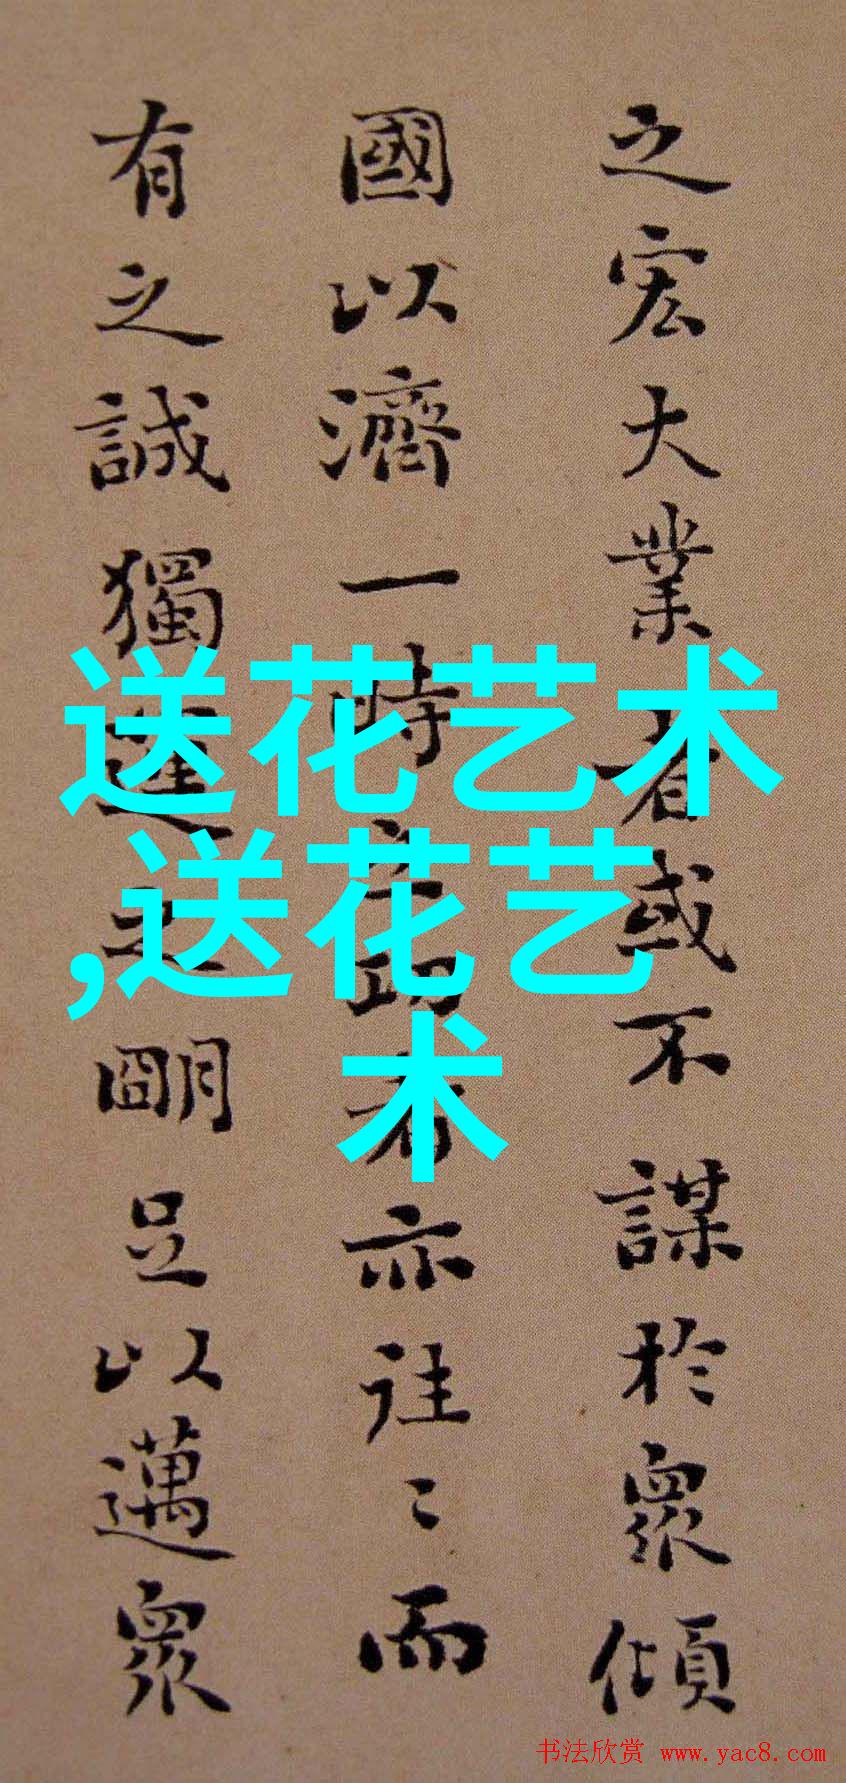 之宏大業者或不謀於衆傾
國以濟一時之功者亦往〻而
有之誠獨達之明足以邁衆
送花艺术
,送花艺
术
书法欣赏 www.yac8.com